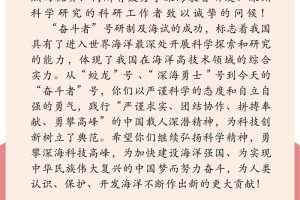 科学研究的科研工作者致以诚挚的问候！
“奋斗者”号研制及海试的成功，标志着我国
具有了进入世界海洋最深处开展科学探索和研究
的能力，体现了我国在海洋高技术领域的综合
实力。从“蛟龙”号、“深海勇士”号到今天的
“奋斗者”号，你们以严谨科学的态度和自立自
强的勇气，践行“严谨求实、团结协作、拼搏奉
献、勇攀高峰”的中国载人深潜精神，为科技创
新树立了典范。希望你们继续弘扬科学精神，勇
攀深海科技高峰，为加快建设海洋强国、为实现
中华民族伟大复兴的中国梦而努力奋斗，为人类
认识、保护、开发海洋不断作出新的更大贡献！